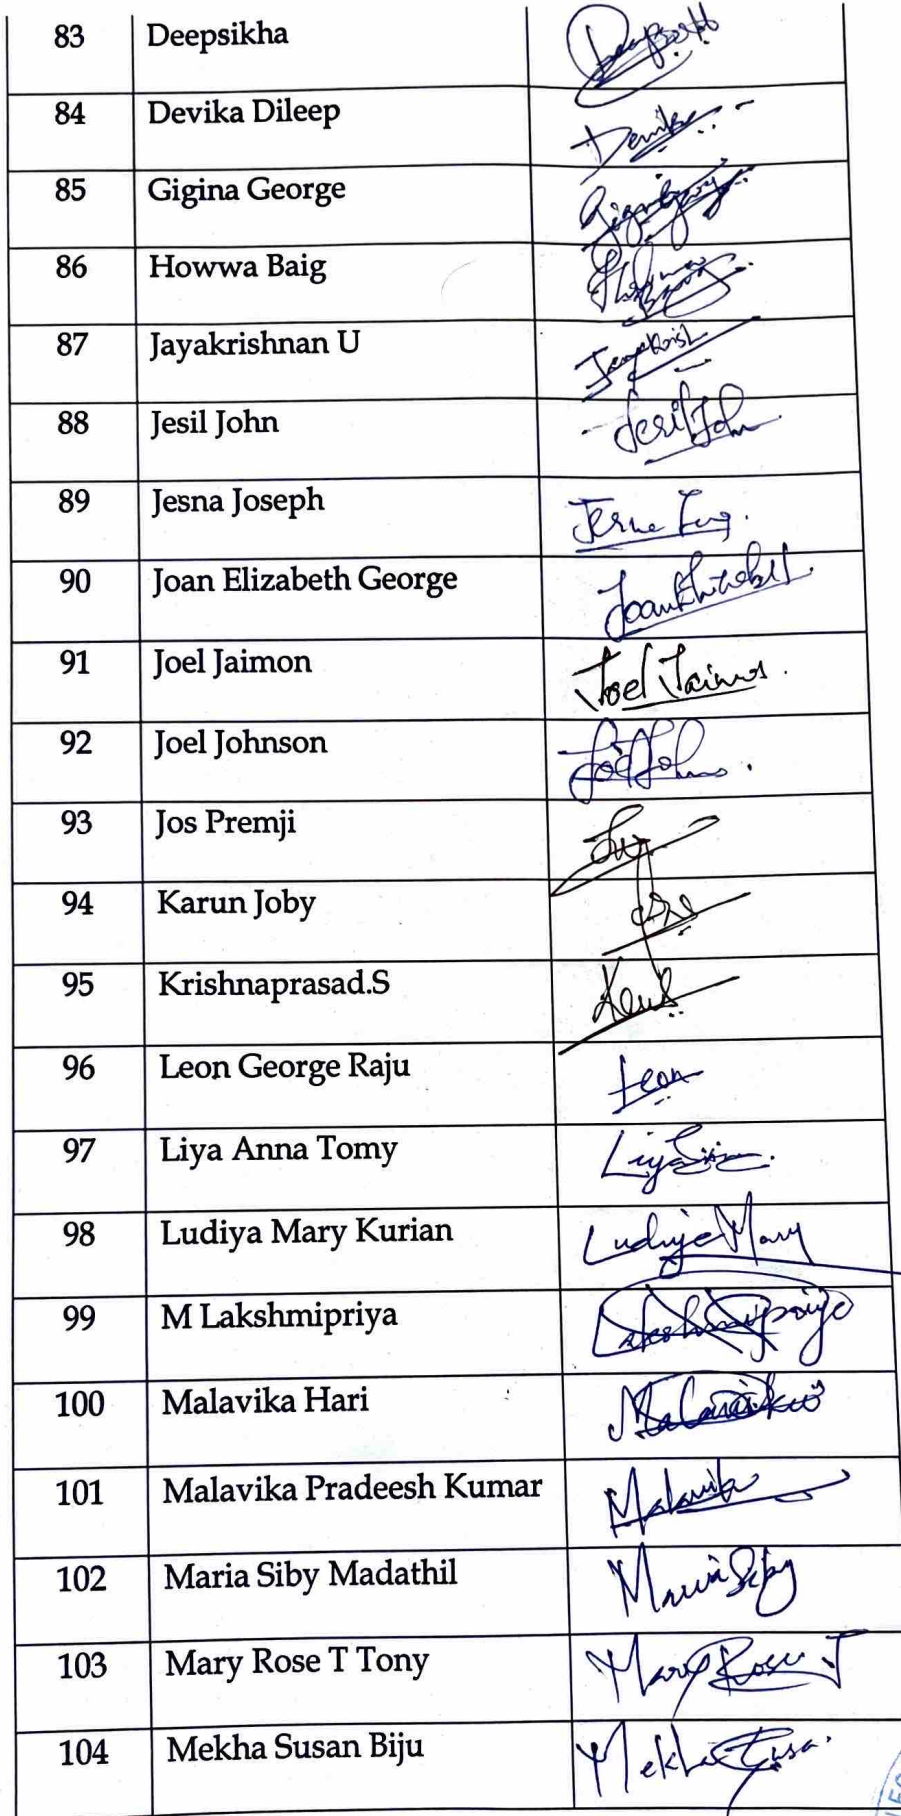 83 Deepsikha
84 Devika Dileep
85 Gigina George
86 Howwa Baig
87 Jayakrishnan U
88 Jesil John Jesil John
89 Jesna Joseph
90 Joan Elizabeth George
91 Joel Jaimon Joel
92 Joel Johnson
93 Jos Premji
94 Karun Joby
95 Krishnaprasad.S
96 Leon George Raju Leon
97 Liya Anna Tomy Liya
98 Ludiya Mary Kurian Ludiya Mary
99 M Lakshmipriya
100 Malavika Hari
101 Malavika Pradeesh Kumar Malavika
102 Maria Siby Madathil Maria Siby
103 Mary Rose T Tony Mary Rose T
104 Mekha Susan Biju Mekha